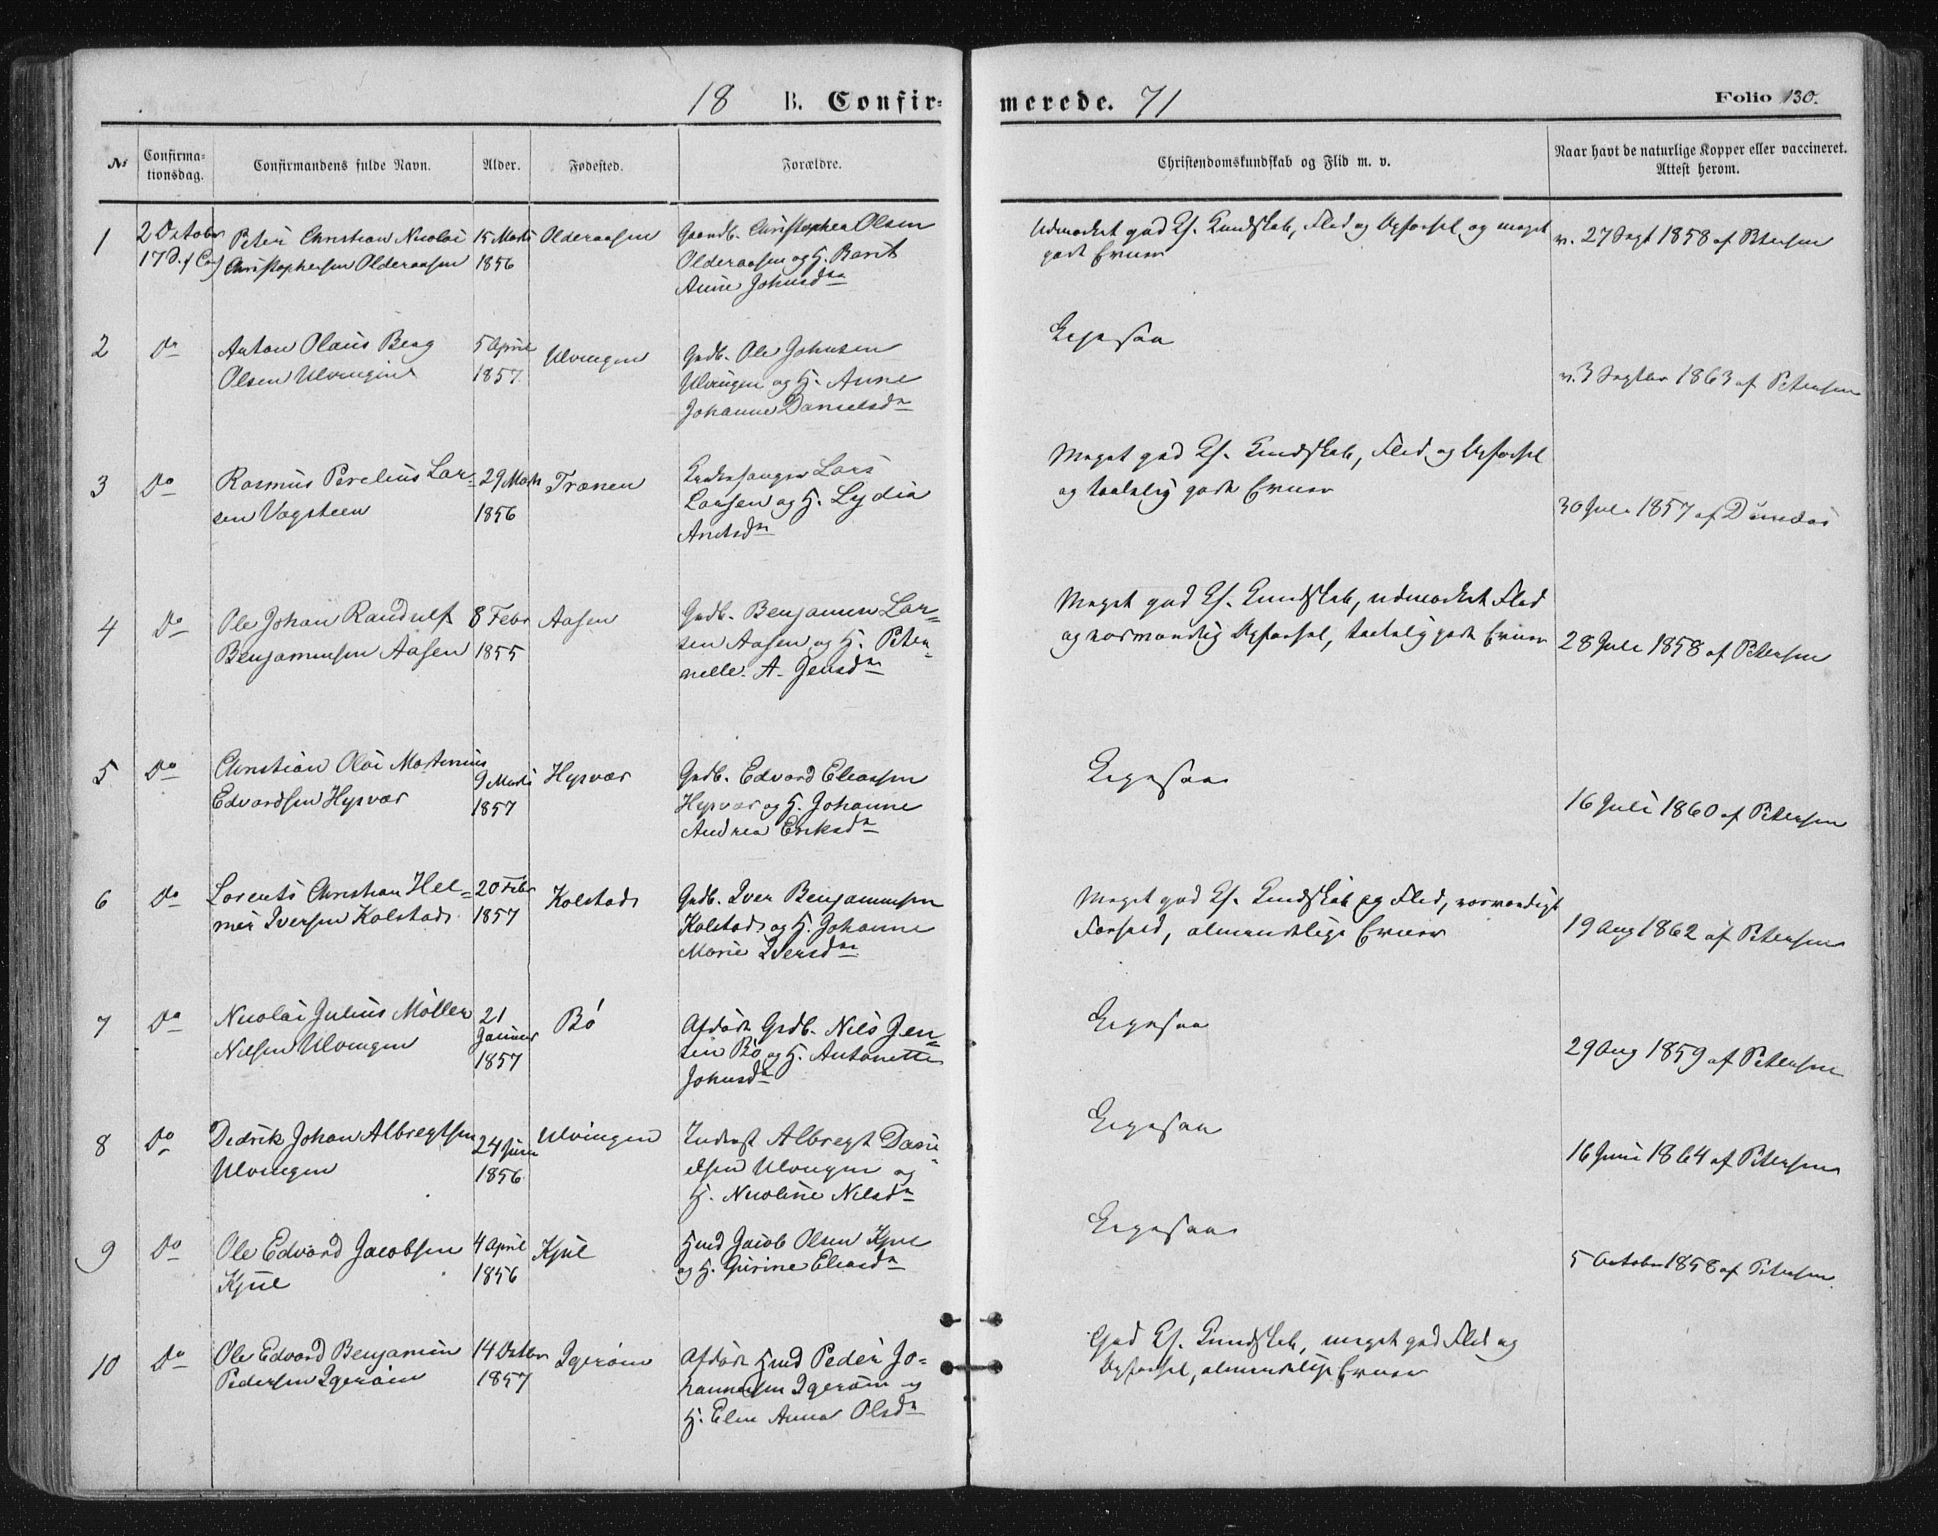 18 B. Confir- merede. 71 Folio 130.
No Confirmationsdag. Confirmandens fulde Navn. Alder. Fødested. Forældre. Christendomskundskab og Flid m. v. Naar havt de naturlige Kopper eller vaccineret. Attest herom.
1 2 October Peter Christian Nicolai 15 Marts Olderaasen Gaardb. Christopher Olsen Udmærket god Ch. Kundskab, Flid og Opførsel og meget v. 27 Sept 1858 af Petersen
17 S. Christophersen Olderaasen 1856 Olderaasen og H. Berit gode Evner
Anne Johnsdr
2 Do Anton Olaus Berg 5 April Ulvingen Grdb. Ole Johnsen Ligesaa
Olsen Ulvingen 1857 Ulvingen og H. Anne v. 3 Septbr 1863 af Petersen
Johanne Danielsdr
3 Do Rasmus Perelius Lar- 29 Marts Trænen Kirkesanger Lars Meget god Ch. Kundskab, Flid og Opførsel
sen Vagsteen 1856 Larsen og H. Lydia og taalelig gode Evner 30 Juli 1857 af Dundas
Arntsdr
4 Do Ole Johan Randulf 8 Febr Aasen Grdb. Benjamin Lar- Meget god Ch. Kundskab, udmærket Flid
Benjaminsen Aasen 1855 sen Aasen og H. Peter- og vosmandig Opførsel, taalelig gode Evner 28 Juli 1858 af Petersen
nelle A. Jensdr
5 Do Christian Olai Martinius 9 Marts Hysvær Grdb. Edvard Eliassen Ligesaa
Edvardsen Hysvær 1857 Hysvær og H. Johanne 16 Juli 1860 af Petersen
Andrea Eriksdr
6 Do Lorents Christian Hel- 20 Febr Kolstad Grdb. Iver Benjaminsen Meget god Ch. Kundskab og Flid,
mer Iversen Kolstad 1857 Kolstad og H. Johanne Forhold, almindelige Evner 19 Aug 1862 af Petersen
Marie Iversdr
7 Do Nicolai Julius Møller 21 Bø Afdøde Grdb. Nils Jen- Ligesaa
Nilsen Ulvingen Januar sen Bø og H. Antonette 29 Aug 1859 af Petersen
1857 Johnsdr
8 Do Didrik Johan Albregtsen 24 Juni Ulvingen Inderst Albregt Dani- Ligesaa
Ulvingen 1856 elsen Ulvingen og 16 Juni 1864 af Petersen
H. Nicoline Nilsdr
9 Do Ole Edvard Jacobsen 4 April Kjul Hmd Jacob Olsen Kjul Ligesaa
Kjul 1856 og H. Gurine Eliasdr 5 October 1858 af Petersen
10 Do Ole Edvard Benjamin 14 Octbr Igerøen Afdøde Hmd Peder Jo- God Ch. Kundskab, meget god Flid og
Pedersen Igerøen 1857 hannesen Igerøen og Opførsel, almindelige Evner
H. Elen Anna Olsdr